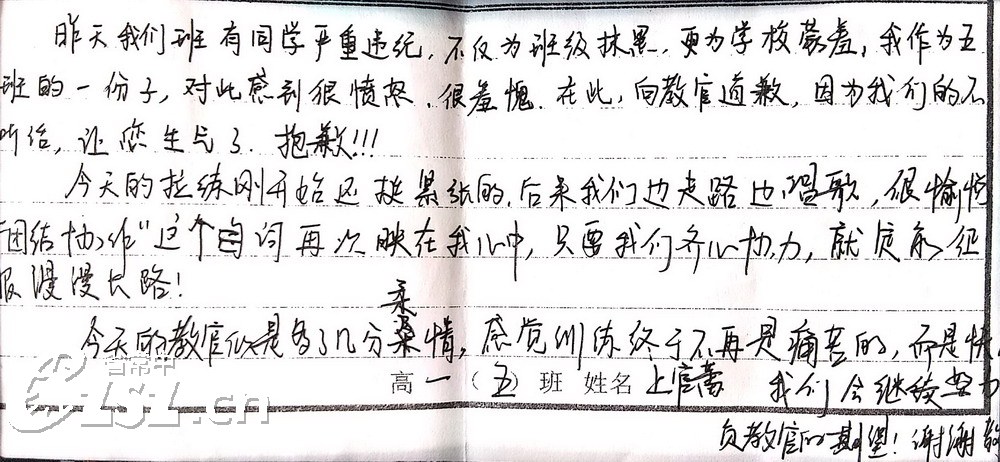 昨天我们班有同学严重违纪,不仅为班级抹黑,更为学校蒙羞,我作为五
班的一份子,对此感到很愤怒,很羞愧.在此,向教官道歉,因为我们的不
听话,让您生气了.抱歉!!!
今天的拉练刚开始还挺紧张的,后来我们边走路边唱歌,很愉悦
团结协作"这个词再次映在我心中,只要我们齐心协力,就定能征
服漫漫长路!
柔
今天的教官似是多了几分柔情,感觉训练终于不再是痛苦的,而是快
高一(五)班 姓名 上官蕾 我们会继续努力
负教官的期望!谢谢教
LSL.cn